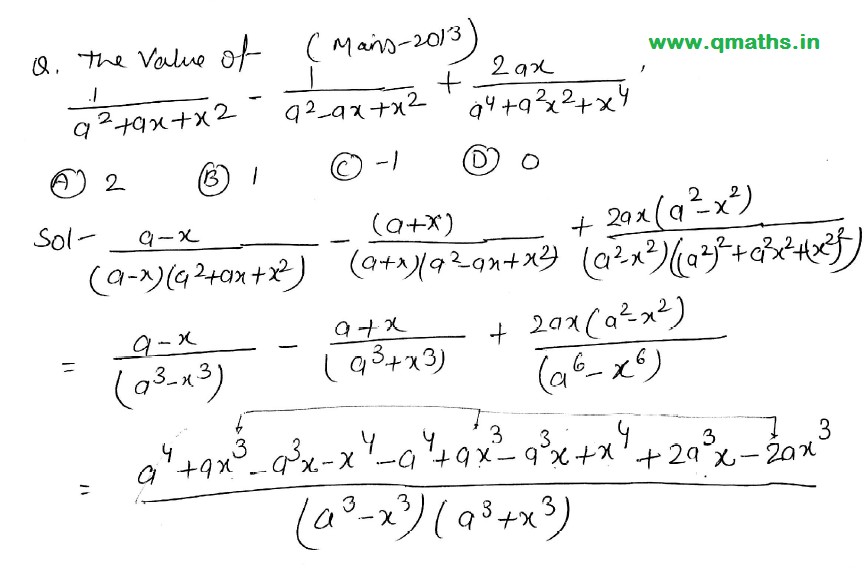 Q. The Value of (Mains-2013) www.qmaths.in
1/(a²+ax+x²) - 1/(a²-ax+x²) + 2ax/(a⁴+a²x²+x⁴),
Ⓐ 2 Ⓑ 1 Ⓒ -1 Ⓓ 0
Sol- (a-x)/((a-x)(a²+ax+x²)) - (a+x)/((a+x)(a²-ax+x²)) + 2ax(a²-x²)/((a²-x²)((a²)²+a²x²+(x²)²))
= (a-x)/(a³-x³) - (a+x)/(a³+x³) + 2ax(a²-x²)/(a⁶-x⁶)
= (a⁴+ax³-a³x-x⁴-a⁴+ax³-a³x+x⁴+2a³x-2ax³)/((a³-x³)(a³+x³))